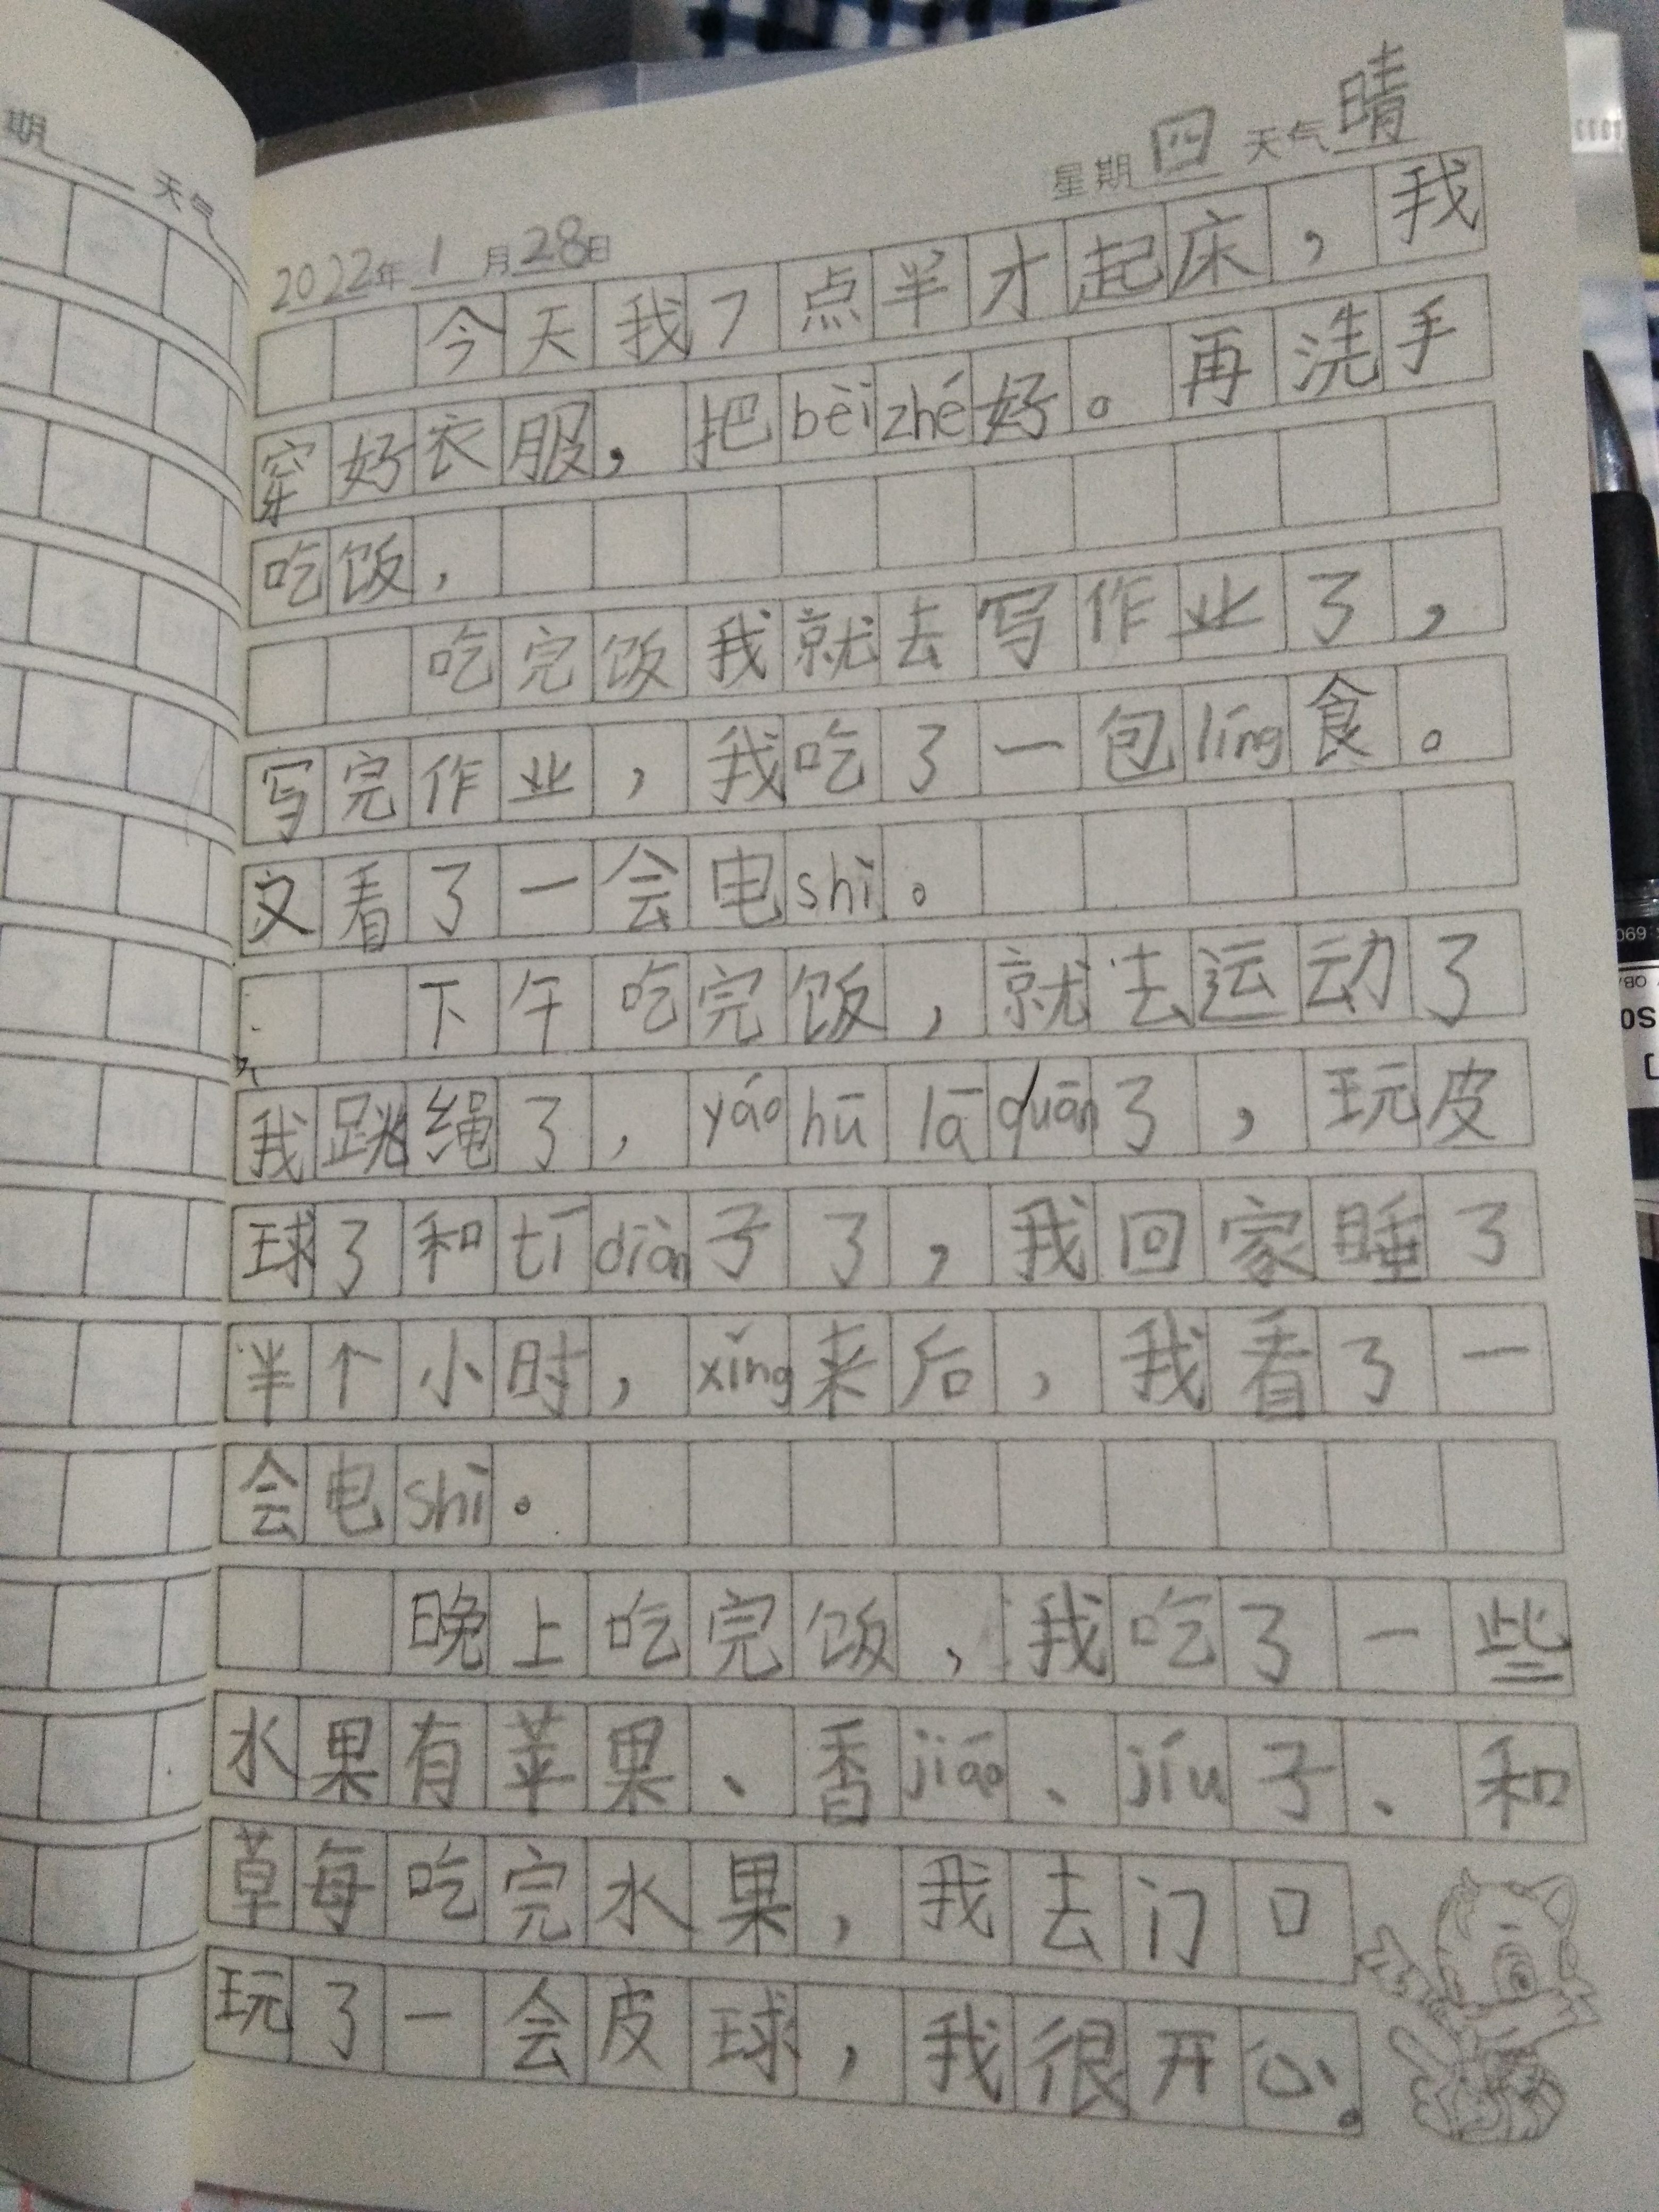 期 天气
星期 四 天气 晴
2022年 1 月 28日
今天我7点半才起床，我
穿好衣服，把bèi zhé好。再洗手
吃饭，
吃完饭我就去写作业了，
写完作业，我吃了一包líng食。
又看了一会电shì。
下午吃完饭，就去运动了
我跳绳了，yáo hū lā quān了，玩皮
球了和tī diàn子了，我回家睡了
半个小时，xǐng来后，我看了一
会电shì。
晚上吃完饭，我吃了一些
水果有苹果、香jiāo、jíu子、和
草每吃完水果，我去门口
玩了一会皮球，我很开心。